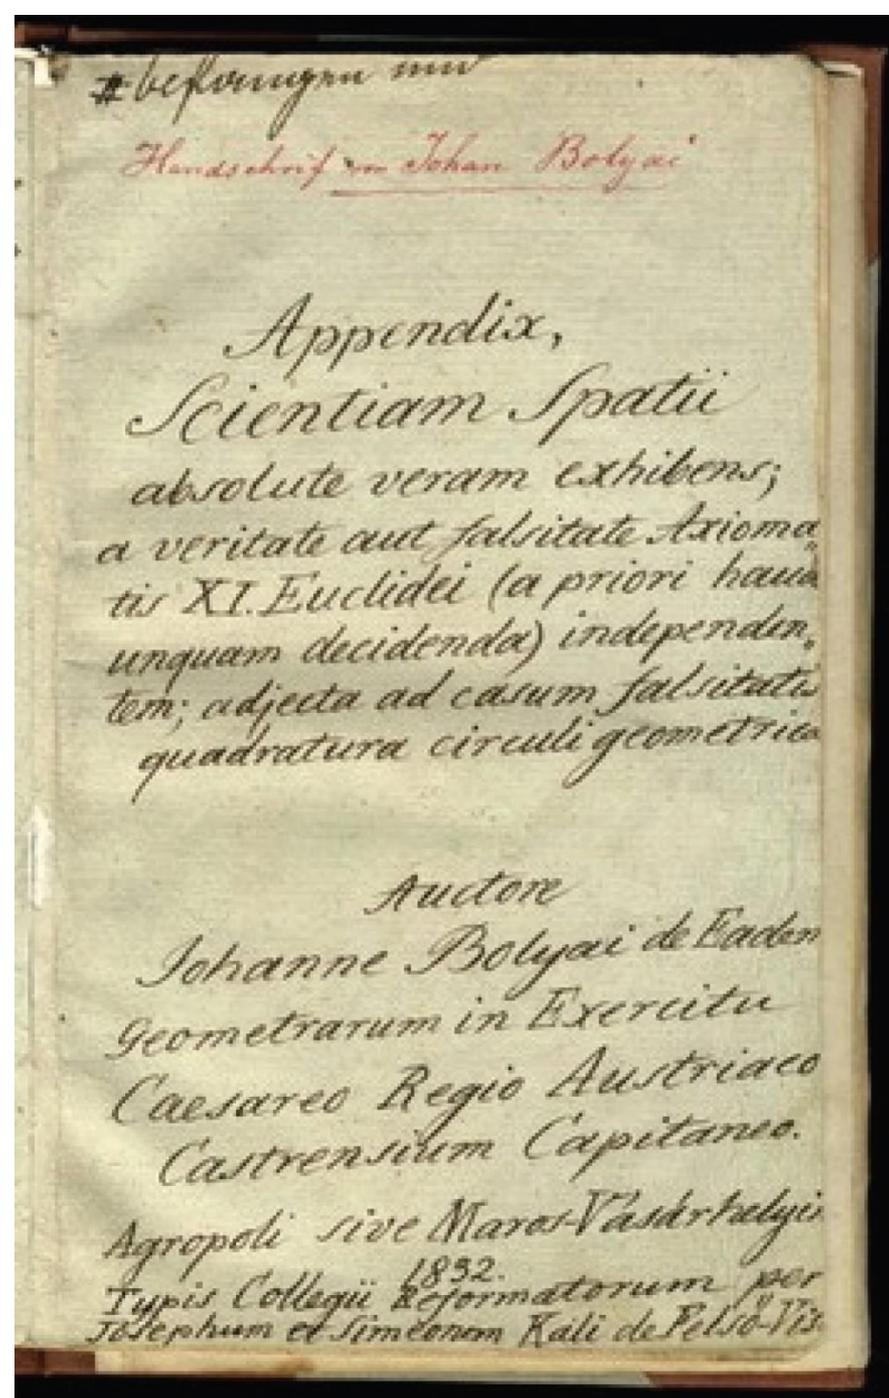 Handschrif von Johan Bolyai
Appendix,
Scientiam Spatii
absolute veram exhibens;
a veritate aut falsitate Axioma„
tis XI. Euclidei (a priori haud
unquam decidenda) independen„
tem; adjecta ad casum falsitatis
quadratura circuli geometrica
Auctore
Johanne Bolyai de Eadem
Geometrarum in Exercitu
Caesareo Regio Austriaco
Castrensium Capitaneo.
Agropoli sive Maros-Vásárhelyini
1832.
Typis Collegii Reformatorum per
Josephum et Simeonem Kali de Felsö-Vis